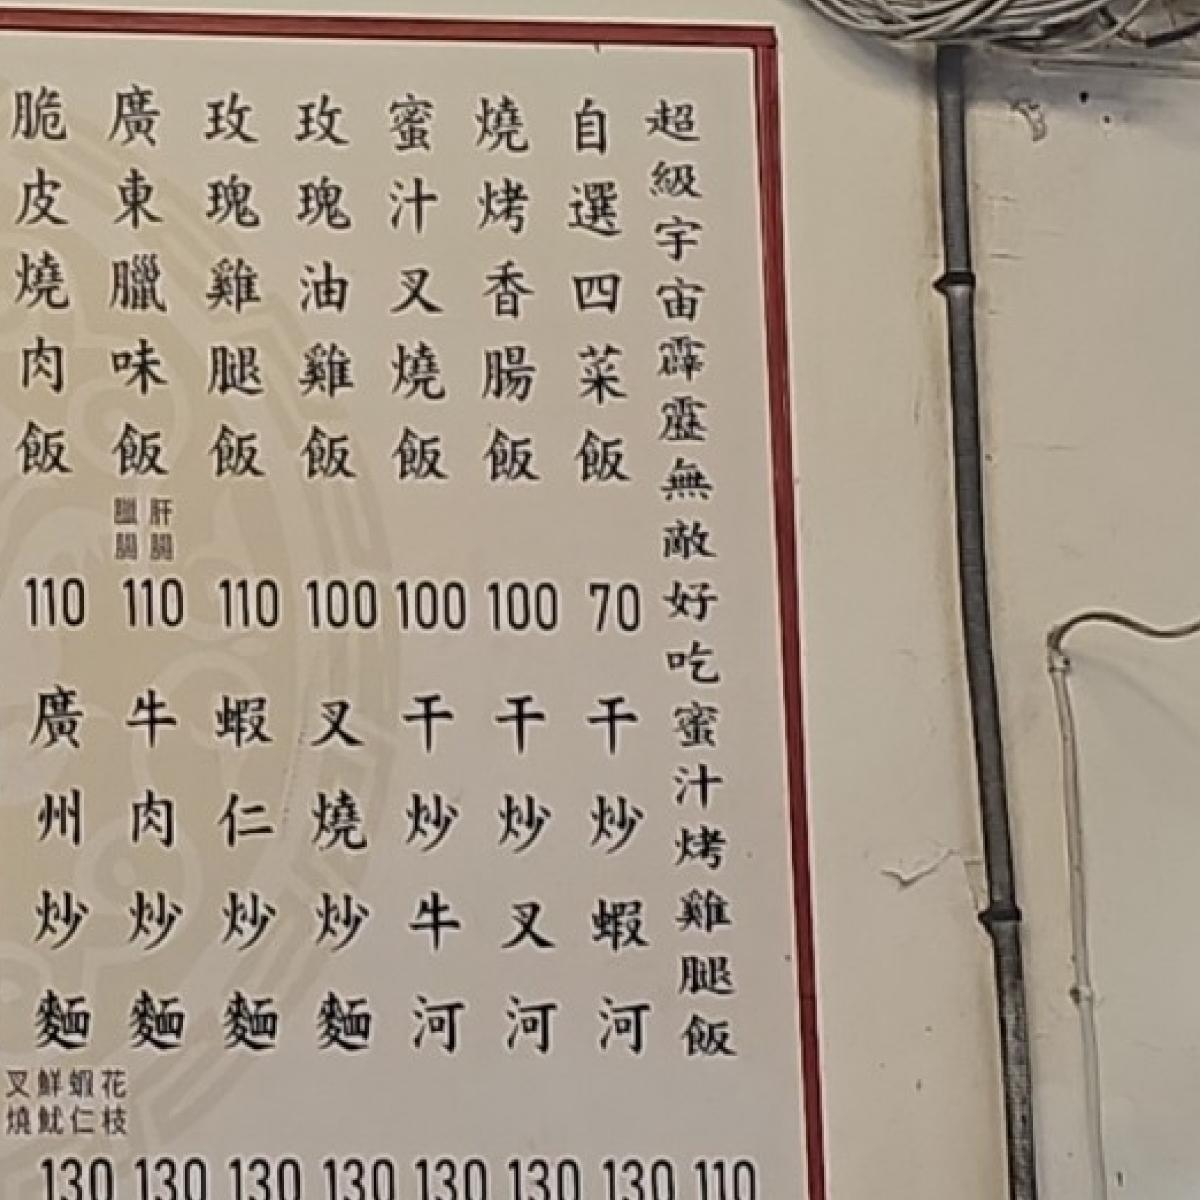 超級宇宙霹靂無敵好吃蜜汁烤雞腿飯
110
自選四菜飯
70
燒烤香腸飯
100
蜜汁叉燒飯
100
玫瑰油雞飯
100
玫瑰雞腿飯
110
廣東臘味飯
肝腸
臘腸
110
脆皮燒肉飯
110
干炒蝦河
130
干炒叉河
130
干炒牛河
130
叉燒炒麵
130
蝦仁炒麵
130
牛肉炒麵
130
廣州炒麵
花枝
蝦仁
鮮魷
叉燒
130